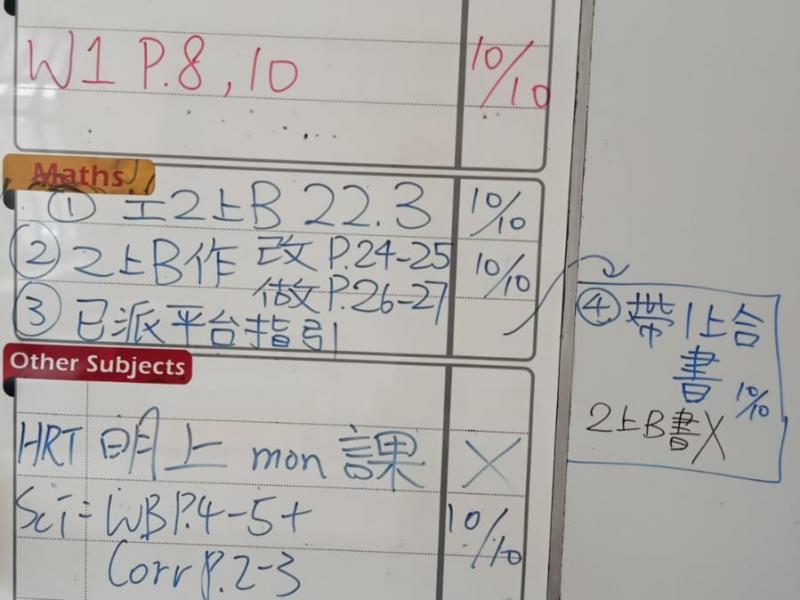 W1 P.8, 10 10/10
Maths
① 工2上B 22.3 10/10
② 2上B作 改 P.24-25 10/10
做 P.26-27
③ 已派平台指引
④ 帶1上合
書 10/10
2上B書X
Other Subjects
HRT 明上 mon 課 X
Sci = WB P.4-5 + 10/10
Corr P.2-3